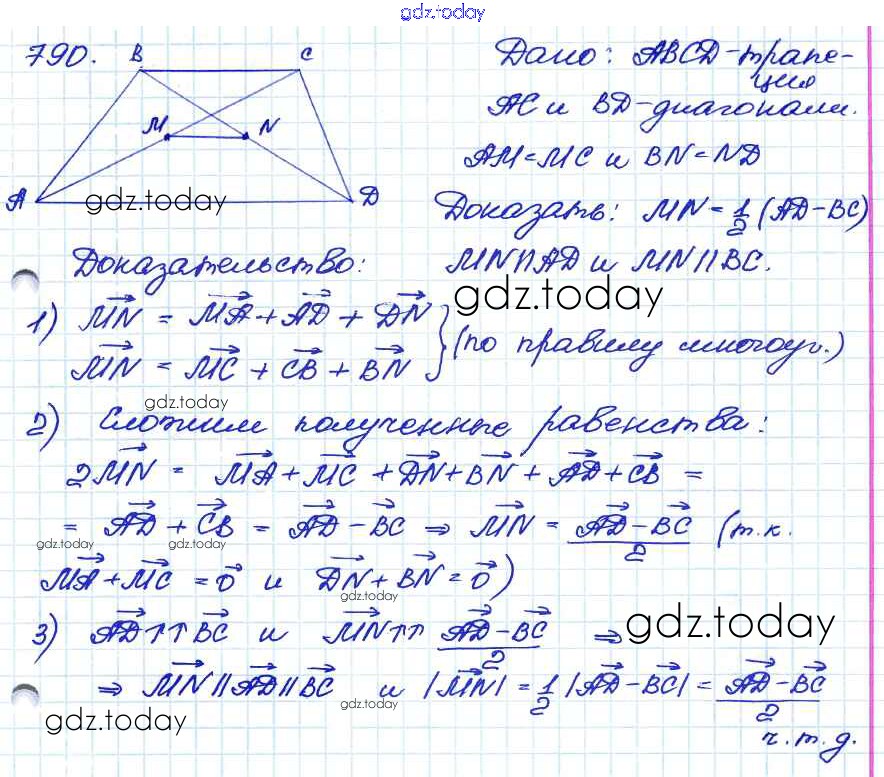 gdz.today
790.
B C
M N
A D
gdz.today
Дано: ABCD-трапе-
ция
AC и BD-диагонали.
AM=MC и BN=ND
Доказать: MN=1/2(AD-BC)
MN||AD и MN||BC.
gdz.today
Доказательство:
1) MN = MA+AD+DN
MN = MC+CB+BN } (по правилу многоуг.)
gdz.today
2) Сложим полученные равенства:
2MN = MA+MC+DN+BN+AD+CB =
= AD+CB = AD-BC ⇒ MN = (AD-BC)/2 (т.к.
gdz.today gdz.today
MA+MC = 0 и DN+BN=0)
gdz.today
3) AD↑↑BC и MN↑↑ (AD-BC)/2 ⇒
gdz.today
⇒ MN||AD||BC и |MN|=1/2|AD-BC|= (AD-BC)/2
gdz.today
gdz.today
ч.т.д.